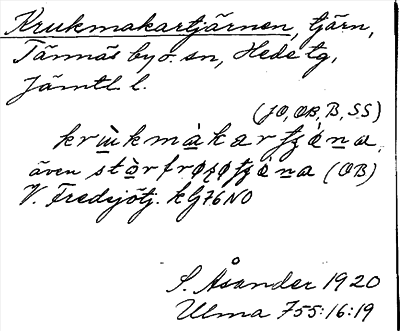 Krukmakartjärnen, tjärn,
Tännäs by o. sn, Hede tg,
Jämtl. l.
(JO, OB, B, SS)
även (OB)
V. Fredsjötj. kfj76NO
S. Åsander 1920
Ulma 755:16:19